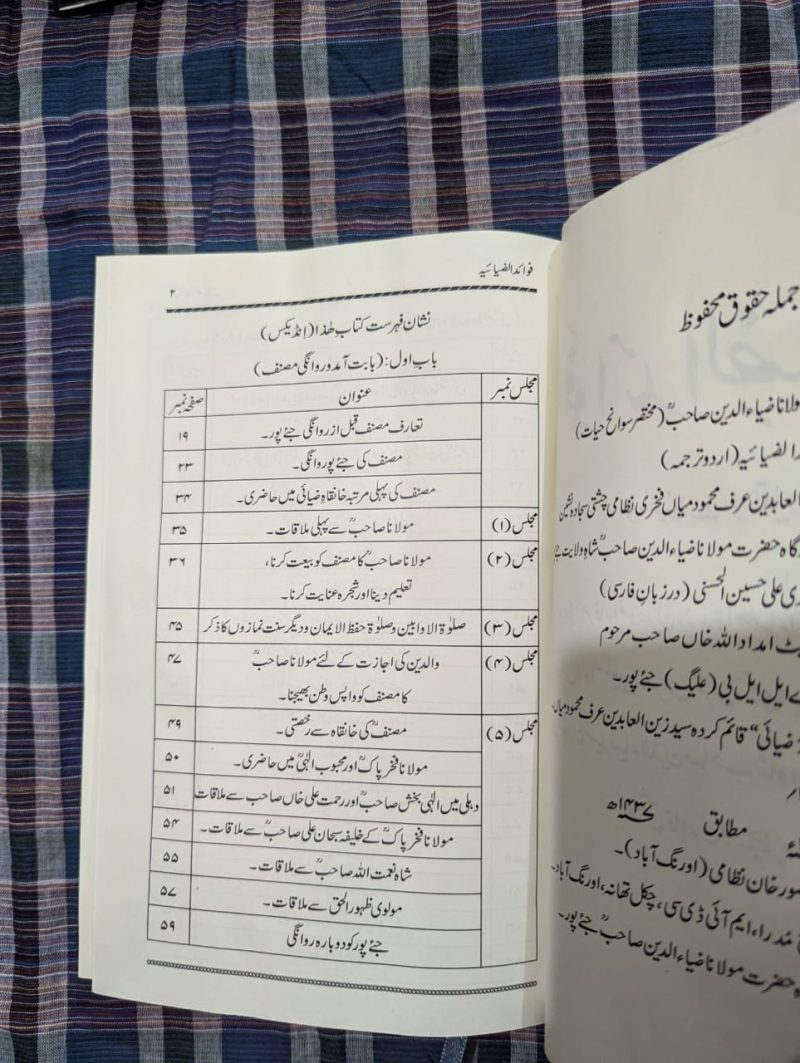 جملہ حقوق محفوظ
مولانا ضیاء الدین صاحبؒ (مختصر سوانح حیات)
الضیائیہ (اردو ترجمہ)
العابدین عرف محمود میاں فخری نظامی چشتی سجادہ نشین
حضرت مولانا ضیاء الدین صاحبؒ شاہ ولایت
علی حسین الحسنی (در زبان فارسی)
امداد اللہ خاں صاحب مرحوم
ایل ایل بی (علیگ) جئے پور۔
ضیائی“ قائم کردہ سید زین العابدین عرف محمود میاں
مطابق ۱۴۳۷ھ
خان نظامی (اورنگ آباد)۔
ایم آئی ڈی سی، چکل تھانہ، اورنگ آباد۔
حضرت مولانا ضیاء الدین صاحبؒ جئے پور۔
فوائد الضیائیہ ۲
نشان فہرست کتابِ ھٰذا (انڈیکس)
باب اول: (بابت آمد و روانگی مصنف)
مجلس نمبر عنوان صفحہ نمبر
تعارف مصنف قبل از روانگی جئے پور۔ ۱۹
مصنف کی جئے پور روانگی۔ ۲۳
مصنف کی پہلی مرتبہ خانقاہ ضیائی میں حاضری۔ ۳۴
مجلس (۱) مولانا صاحبؒ سے پہلی ملاقات۔ ۳۵
مجلس (۲) مولانا صاحبؒ کا مصنف کو بیعت کرنا، ۳۶
تعلیم دینا اور شجرہ عنایت کرنا۔
مجلس (۳) صلوٰۃ الاوابین و صلوٰۃ حفظ الایمان و دیگر سنت نمازوں کا ذکر ۴۵
مجلس (۴) والدین کی اجازت کے لئے مولانا صاحبؒ ۴۷
کا مصنف کو واپس وطن بھیجنا۔
مجلس (۵) مصنفؒ کی خانقاہ سے رخصتی۔ ۴۹
مولانا فخر پاکؒ اور محبوب الٰہیؒ میں حاضری۔ ۵۰
دہلی میں الٰہی بخش صاحبؒ اور رحمت علی خاں صاحب سے ملاقات ۵۱
مولانا فخر پاکؒ کے خلیفہ سبحان علی صاحبؒ سے ملاقات۔ ۵۴
شاہ نعمت اللہ صاحبؒ سے ملاقات۔ ۵۵
مولوی ظہور الحق سے ملاقات۔ ۵۷
جئے پور کو دوبارہ روانگی ۵۹